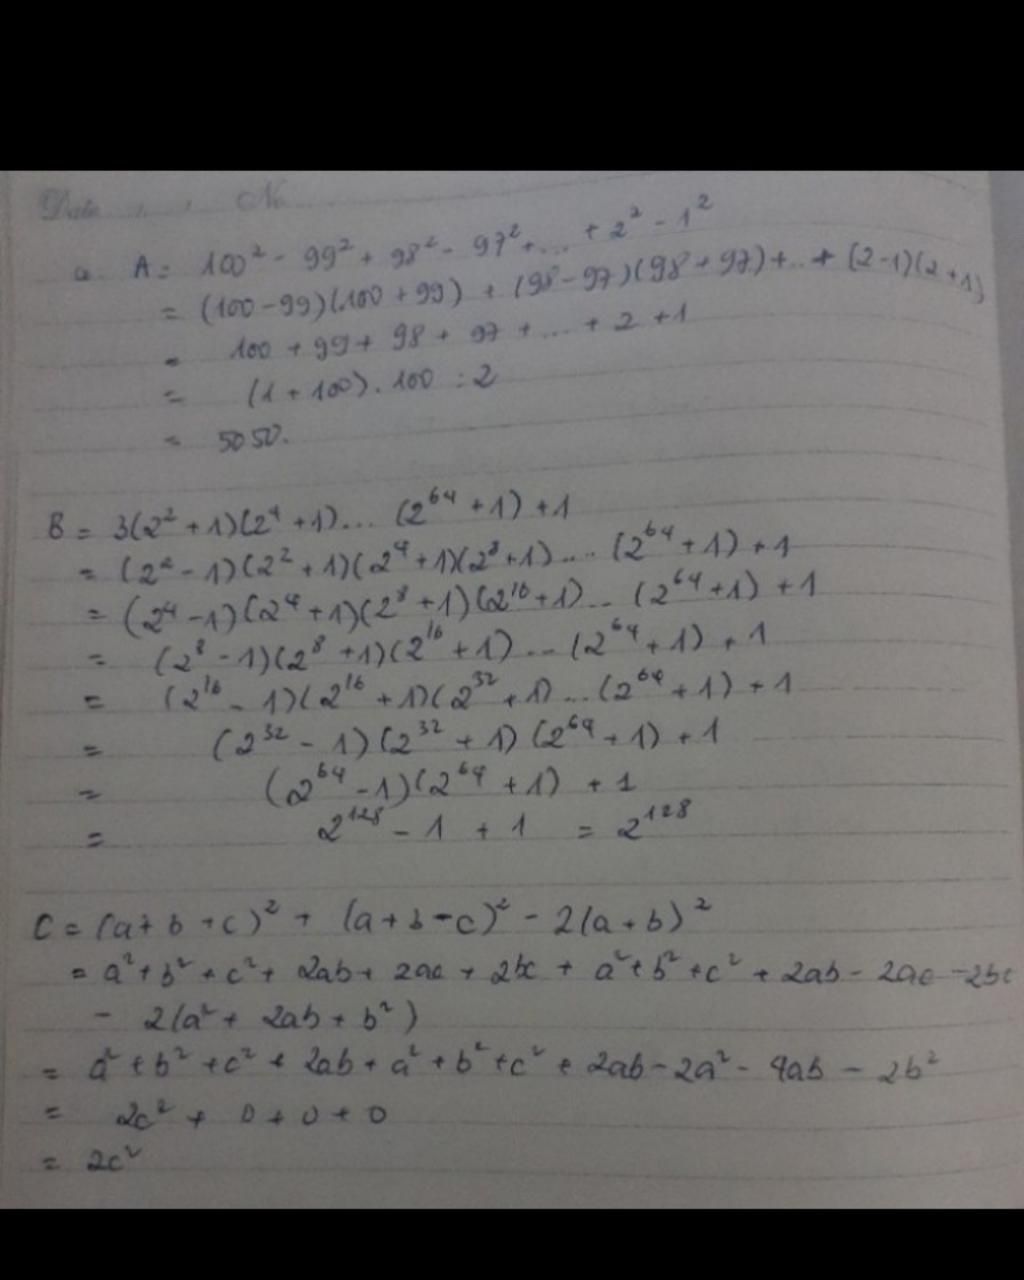 Date . . . No
a. A = 100² - 99² + 98² - 97² + ... + 2² - 1²
= (100 - 99)(100 + 99) + (98 - 97)(98 + 97) + .. + (2 - 1)(2 + 1)
= 100 + 99 + 98 + 97 + ... + 2 + 1
= (1 + 100) . 100 : 2
= 5050.
B = 3(2² + 1)(2⁴ + 1)... (2⁶⁴ + 1) + 1
= (2² - 1)(2² + 1)(2⁴ + 1)(2⁸ + 1).... (2⁶⁴ + 1) + 1
= (2⁴ - 1)(2⁴ + 1)(2⁸ + 1)(2¹⁶ + 1)... (2⁶⁴ + 1) + 1
= (2⁸ - 1)(2⁸ + 1)(2¹⁶ + 1)... (2⁶⁴ + 1) + 1
= (2¹⁶ - 1)(2¹⁶ + 1)(2³² + 1)...(2⁶⁴ + 1) + 1
= (2³² - 1)(2³² + 1)(2⁶⁴ + 1) + 1
= (2⁶⁴ - 1)(2⁶⁴ + 1) + 1
= 2¹²⁸ - 1 + 1 = 2¹²⁸
C = (a + b + c)² + (a + b - c)² - 2(a + b)²
= a² + b² + c² + 2ab + 2ac + 2bc + a² + b² + c² + 2ab - 2ac - 2bc
- 2(a² + 2ab + b²)
= a² + b² + c² + 2ab + a² + b² + c² + 2ab - 2a² - 4ab - 2b²
= 2c² + 0 + 0 + 0
= 2c²